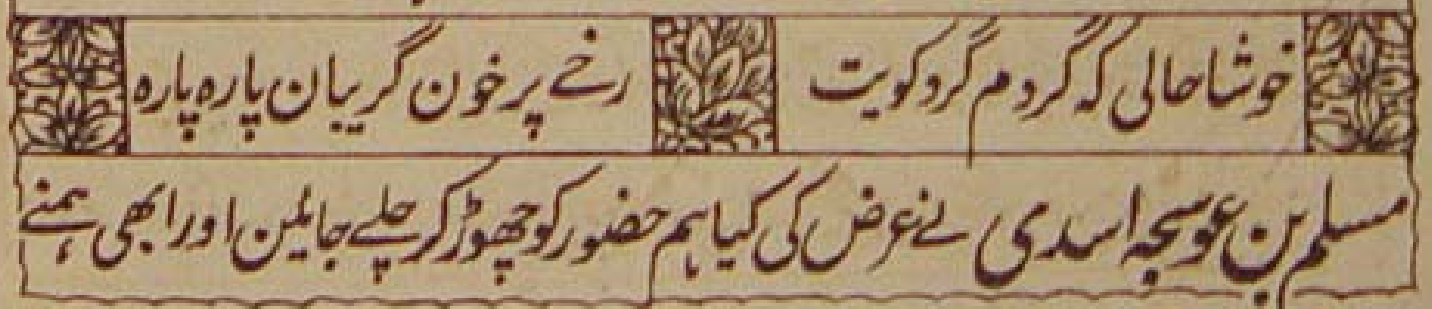 خوشا حالی که گردم گرد کویت رخے پر خون گریبان پاره پاره
مسلم بن عوسجہ اسدی نے عرض کی کیا ہم حضور کو چھوڑ کر چلے جائین اور ابھی ہمنے